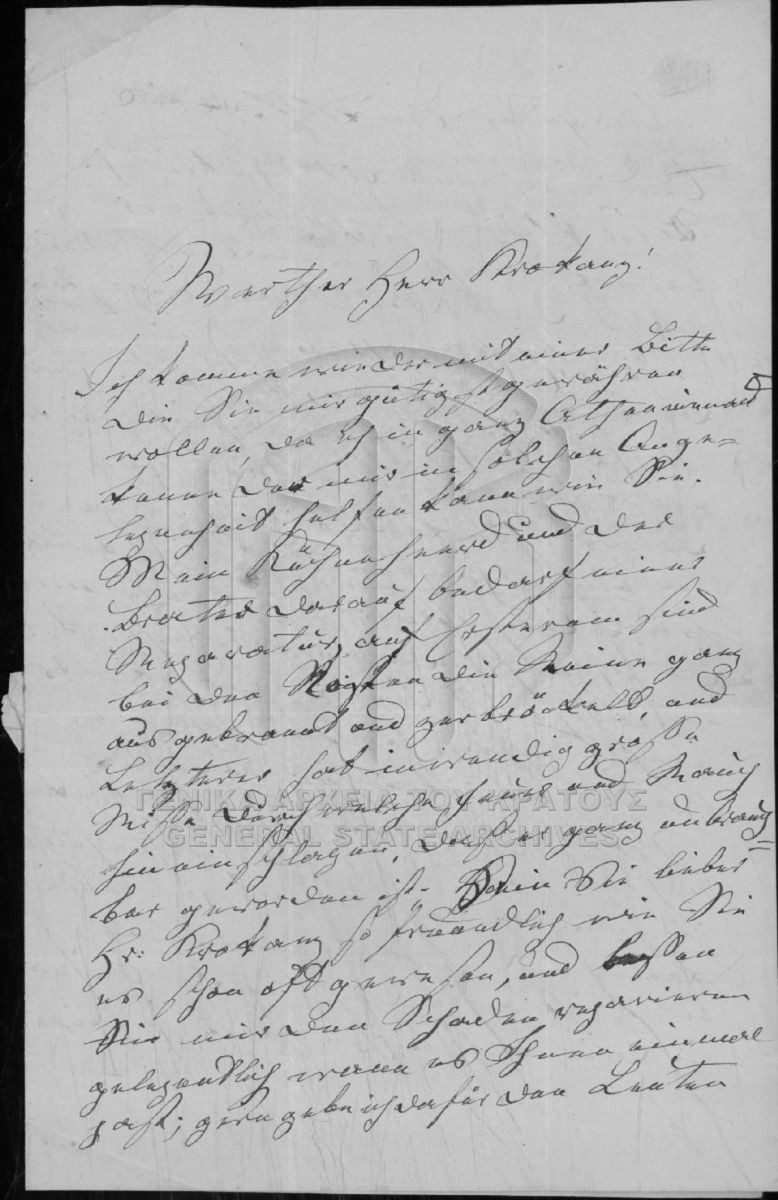 Werther Herr Krokany!
Ich komme wieder mit einer Bitte
die Sie mir gütigst gewähren
wollen, da ich in ganz Athen niemand
kenne der mir in solchen Ange-
legenheit helfen kann wie Sie.
Mein Küchenheerd und der
Brater darauf bedarf einer
Reparatur, auf Ersterem sind
bei den die Steine ganz
ausgebrannt und zerbröckelt, und
Letzterer hat inwendig grosse
Risse durch welche Feuer und Rauch
hineinschlagen, dass er ganz unbrauch=
bar geworden ist. Sein Sie lieber
Hr: Krokany so freundlich wie Sie
es schon oft gewesen, und lassen
Sie mir den Schaden repariren
gelegentlich wann es Ihnen einmal
past; gern gebe ich dafür den Leuten
ΓΕΝΙΚΑ ΑΡΧΕΙΑ ΤΟΥ ΚΡΑΤΟΥΣ
GENERAL STATE ARCHIVES